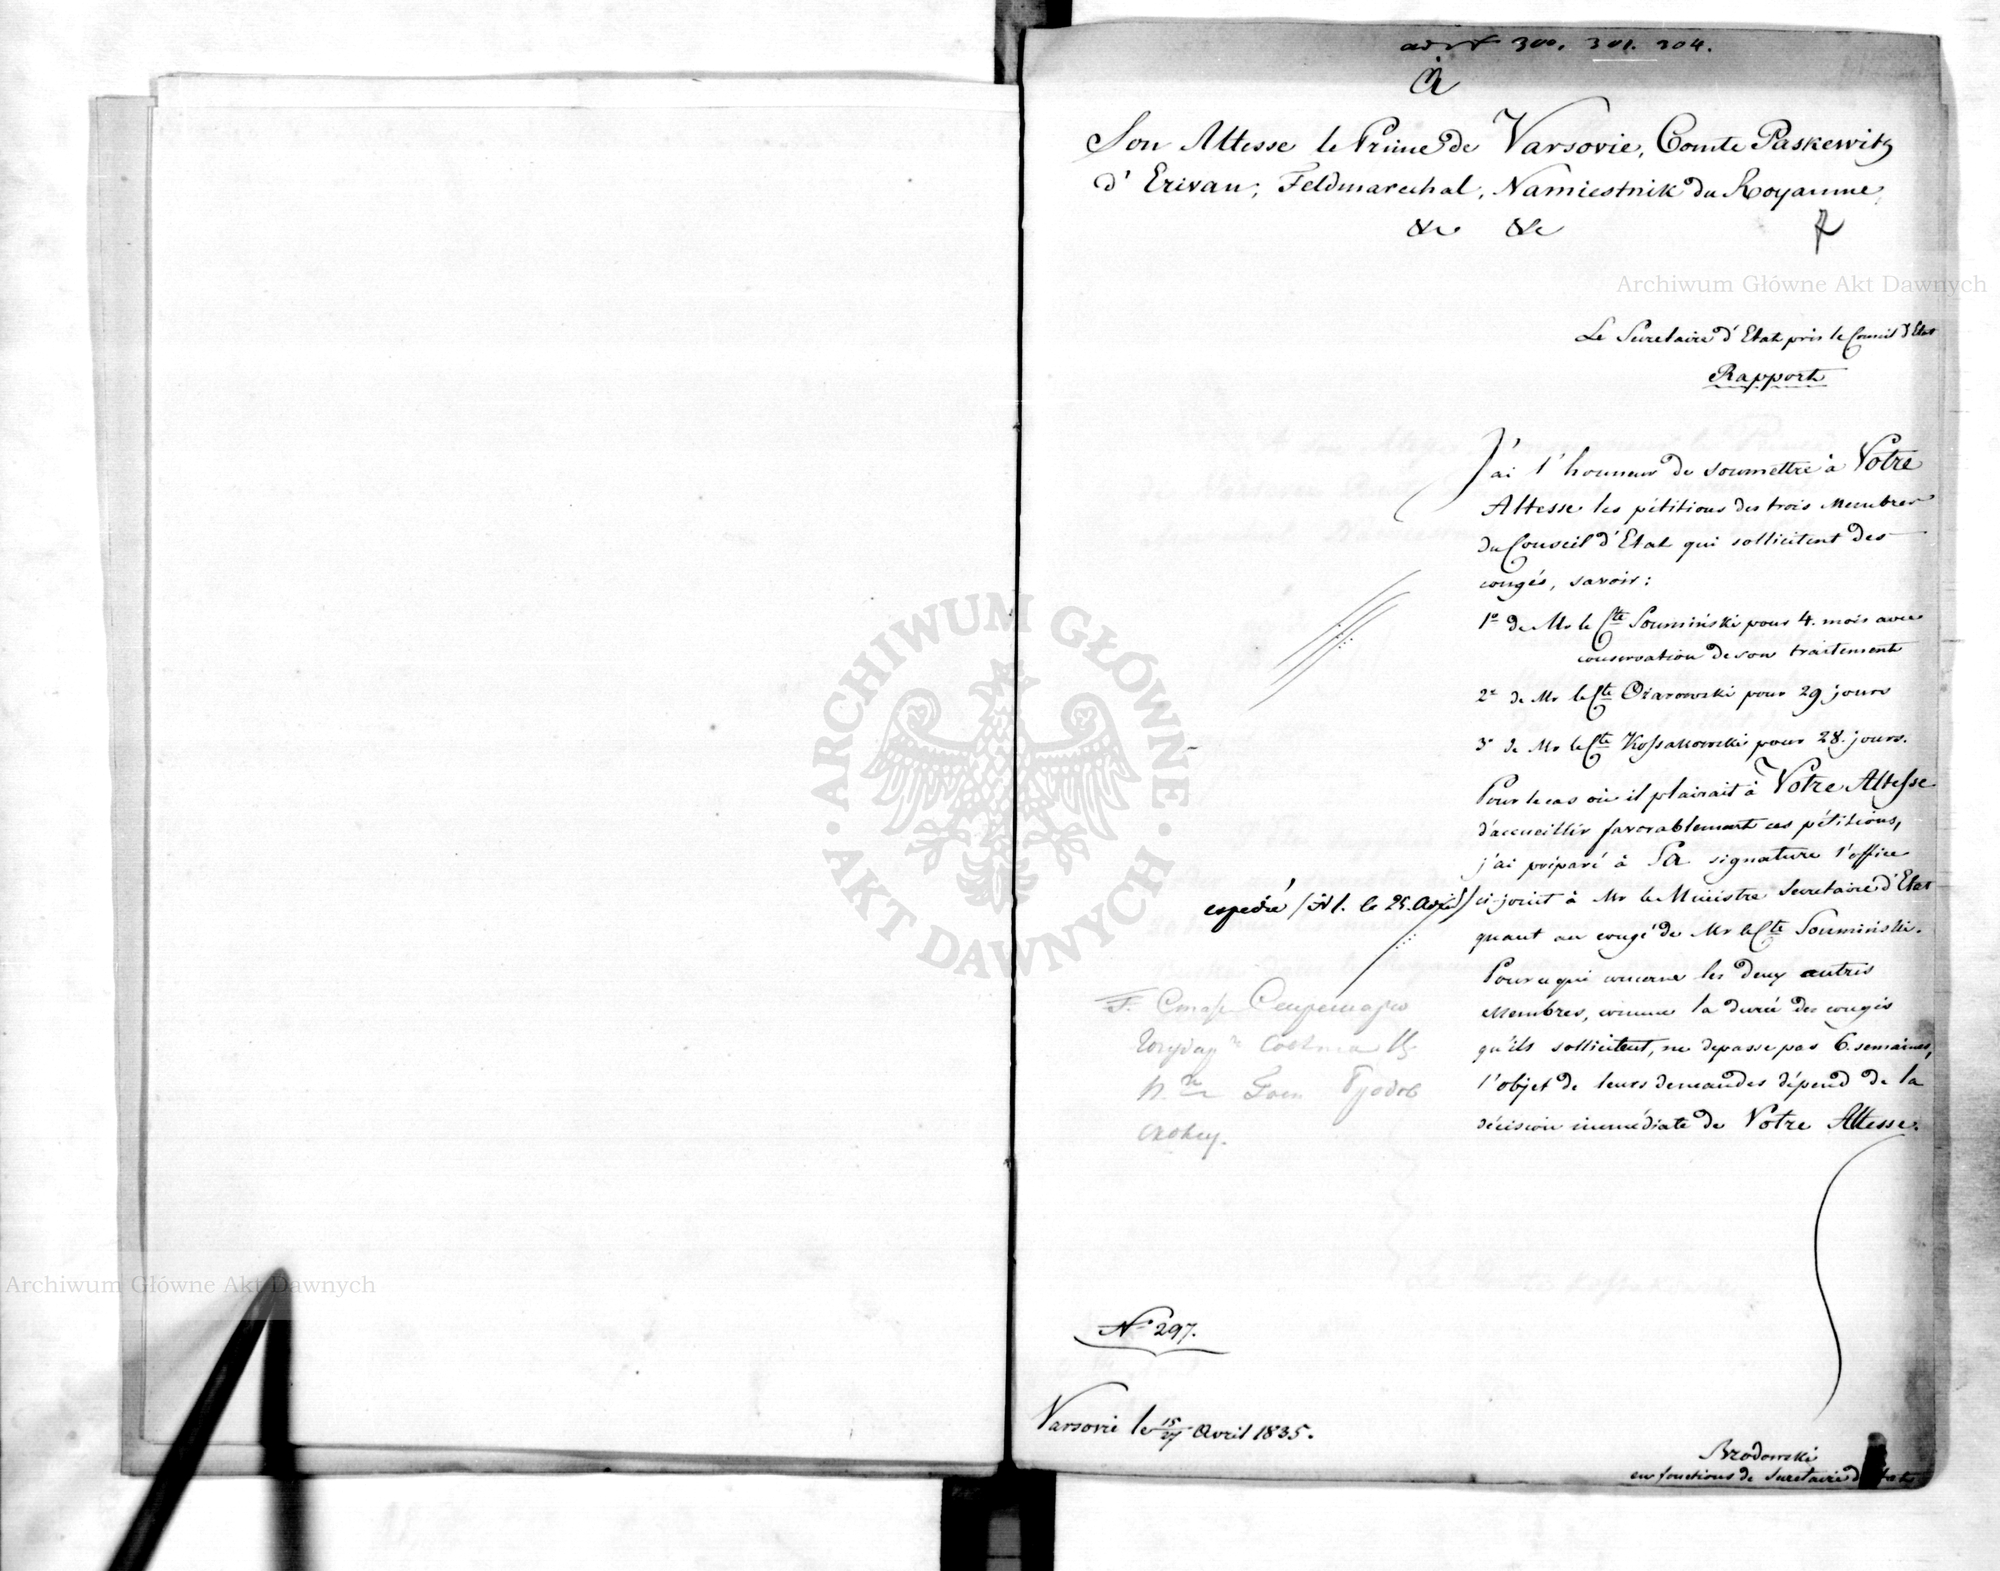 300. 301. 304.
à
Son Altesse le Prince de Varsovie, Comte Paskewitz
d'Erivan, Feldmarechal, Namiestnik du Royaume
&c &c
Archiwum Główne Akt Dawnych
Le Secretaire d'Etat près le Conseil d'Etat
Rapport
J'ai l'honneur de soumettre à Votre
Altesse les pétitions des trois Membres
du Conseil d'Etat qui sollicitent des
congés, savoir:
1º de Mr le Cte Souminski pour 4. mois avec
conservation de son traitement
2º de Mr le Cte Ożarowski pour 29 jours
3º de Mr le Cte Kossakowski pour 28. jours.
Pour le cas où il plairait à Votre Altesse
d'accueillir favorablement ces pétitions,
j'ai préparé à Sa signature l'office
ci-joint à Mr le Ministre Secretaire d'Etat
quant au congé de Mr le Cte Souminski.
Pour ce qui concerne les deux autres
Membres, comme la durée des congés
qu'ils sollicitent, ne depasse pas 6. semaines,
l'objet de leurs demandes dépend de la
décision immédiate de Votre Altesse.
expedié le 25. Avril
Nº 297.
Varsovie le 15/27 Avril 1835.
Brodowski
en fonctions de Secretaire d'Etat
ARCHIWUM GŁÓWNE
AKT DAWNYCH
Archiwum Główne Akt Dawnych